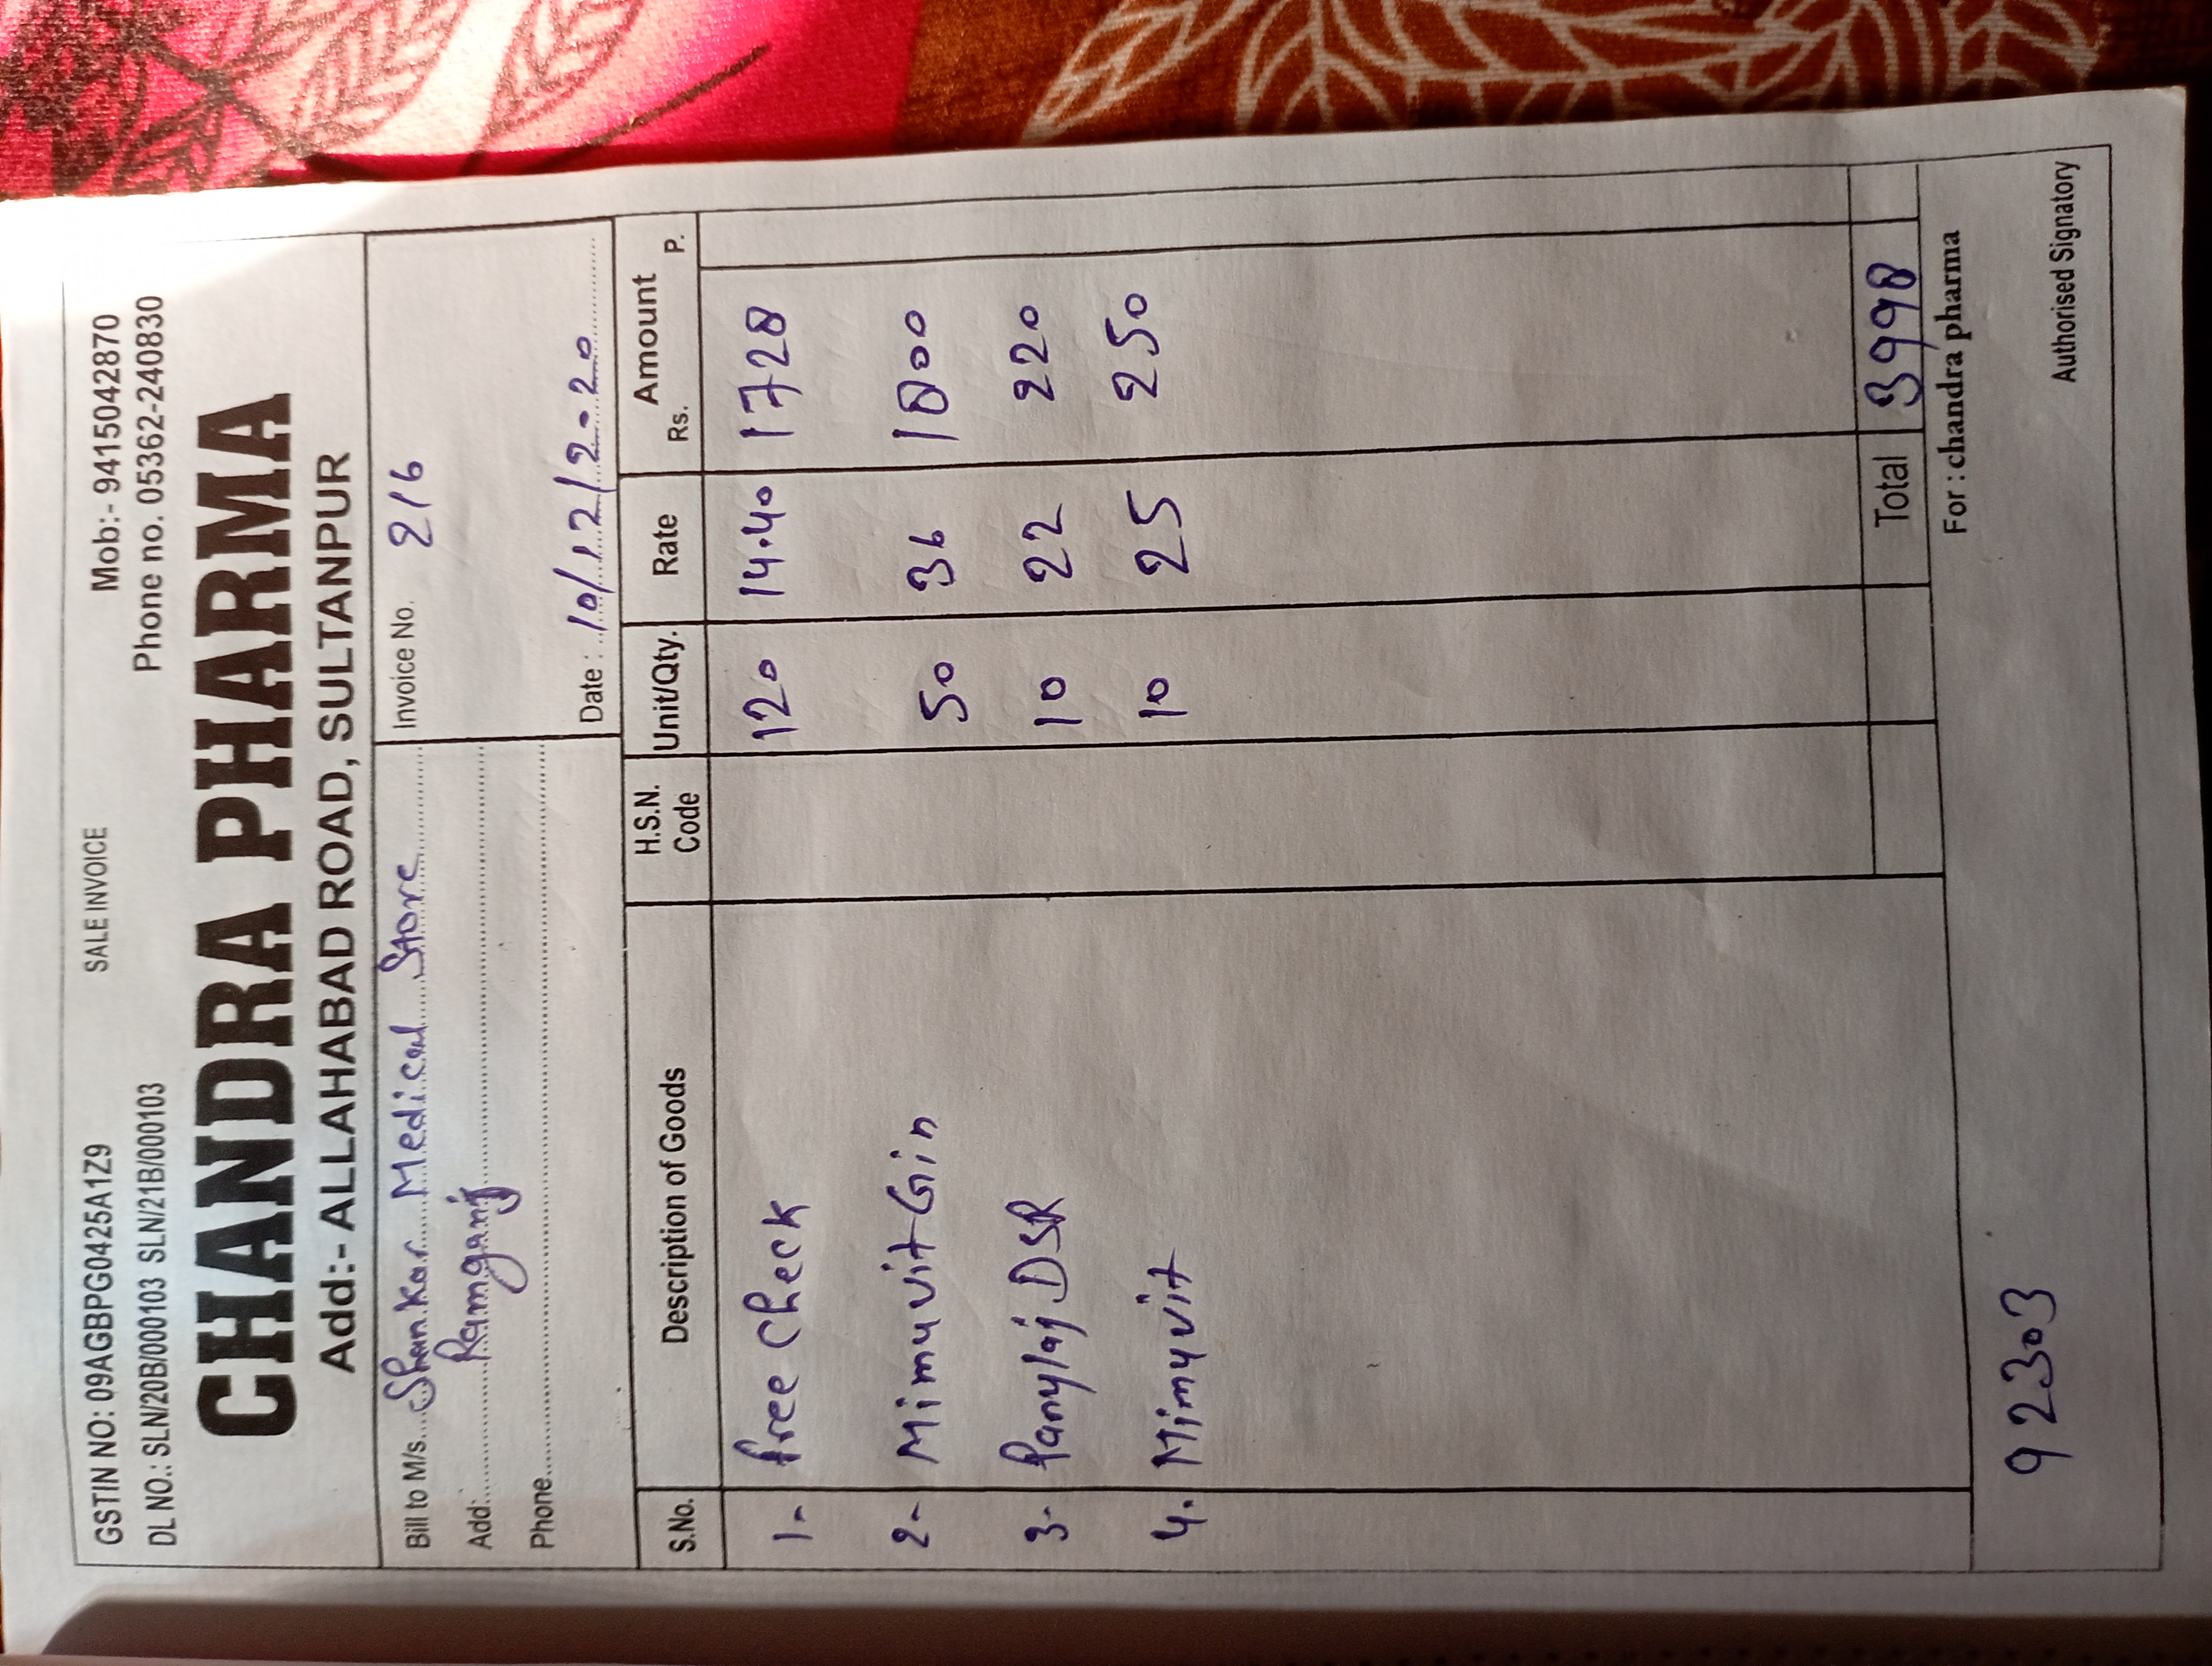 GSTIN NO: 09AGBPG0425A1Z9 SALE INVOICE Mob:- 9415042870
DL NO.: SLN/20B/000103 SLN/21B/000103 Phone no. 05362-240830
CHANDRA PHARMA
Add:- ALLAHABAD ROAD, SULTANPUR
Bill to M/s. Shankar Medical Store Invoice No. 216
Add: Ramganj
Phone Date : 10/12/2020
S.No. Description of Goods H.S.N. Code Unit/Qty. Rate Amount Rs. P.
1- free check 120 14.40 1728
2- Mimuvit Gin 50 36 1800
3- Panylaj DSR 10 22 220
4. Mimyvit 10 25 250
Total 3998
For : chandra pharma
92303
Authorised Signatory